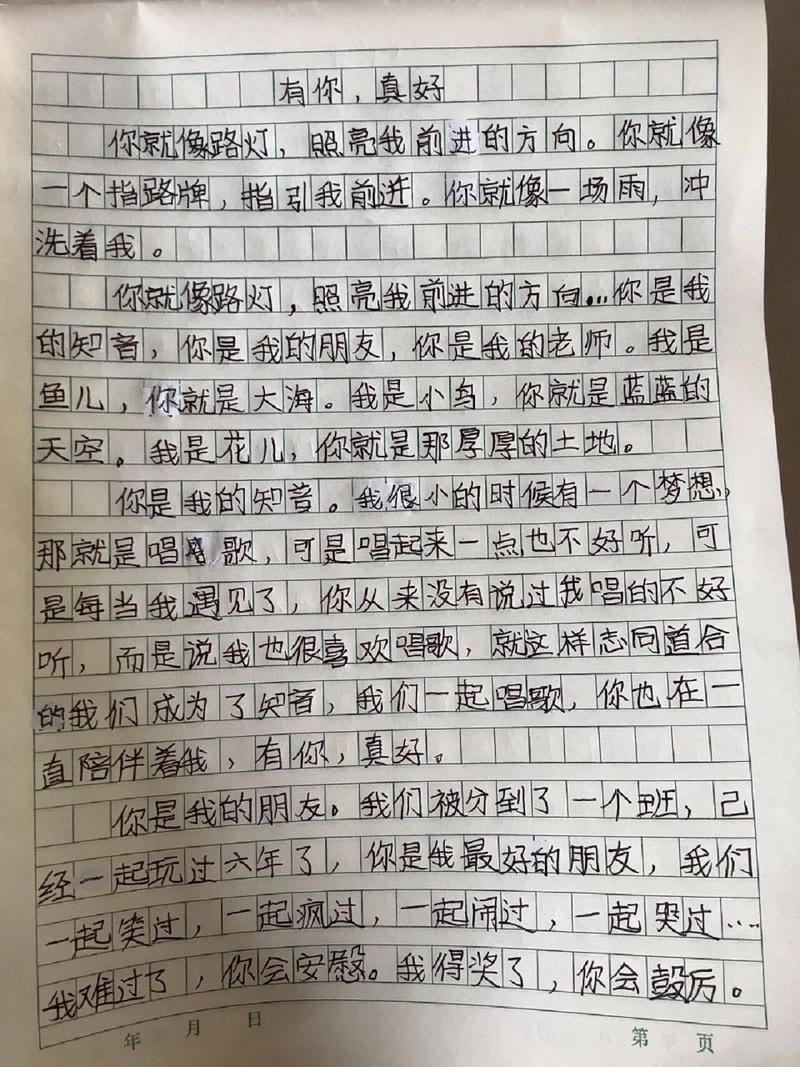 有你，真好
你就像路灯，照亮我前进的方向。你就像
一个指路牌，指引我前进。你就像一场雨，冲
洗着我。
你就像路灯，照亮我前进的方向…你是我
的知音，你是我的朋友，你是我的老师。我是
鱼儿，你就是大海。我是小鸟，你就是蓝蓝的
天空。我是花儿，你就是那厚厚的土地。
你是我的知音。我很小的时候有一个梦想，
那就是唱歌，可是唱起来一点也不好听，可
是每当我遇见了，你从来没有说过我唱的不好
听，而是说我也很喜欢唱歌，就这样志同道合
的我们成为了知音，我们一起唱歌，你也在一
直陪伴着我，有你，真好。
你是我的朋友。我们被分到了一个班，己
经一起玩过六年了，你是我最好的朋友，我们
一起笑过，一起疯过，一起闹过，一起哭过……
我难过了，你会安慰。我得奖了，你会鼓厉。
年 月 日
第 页